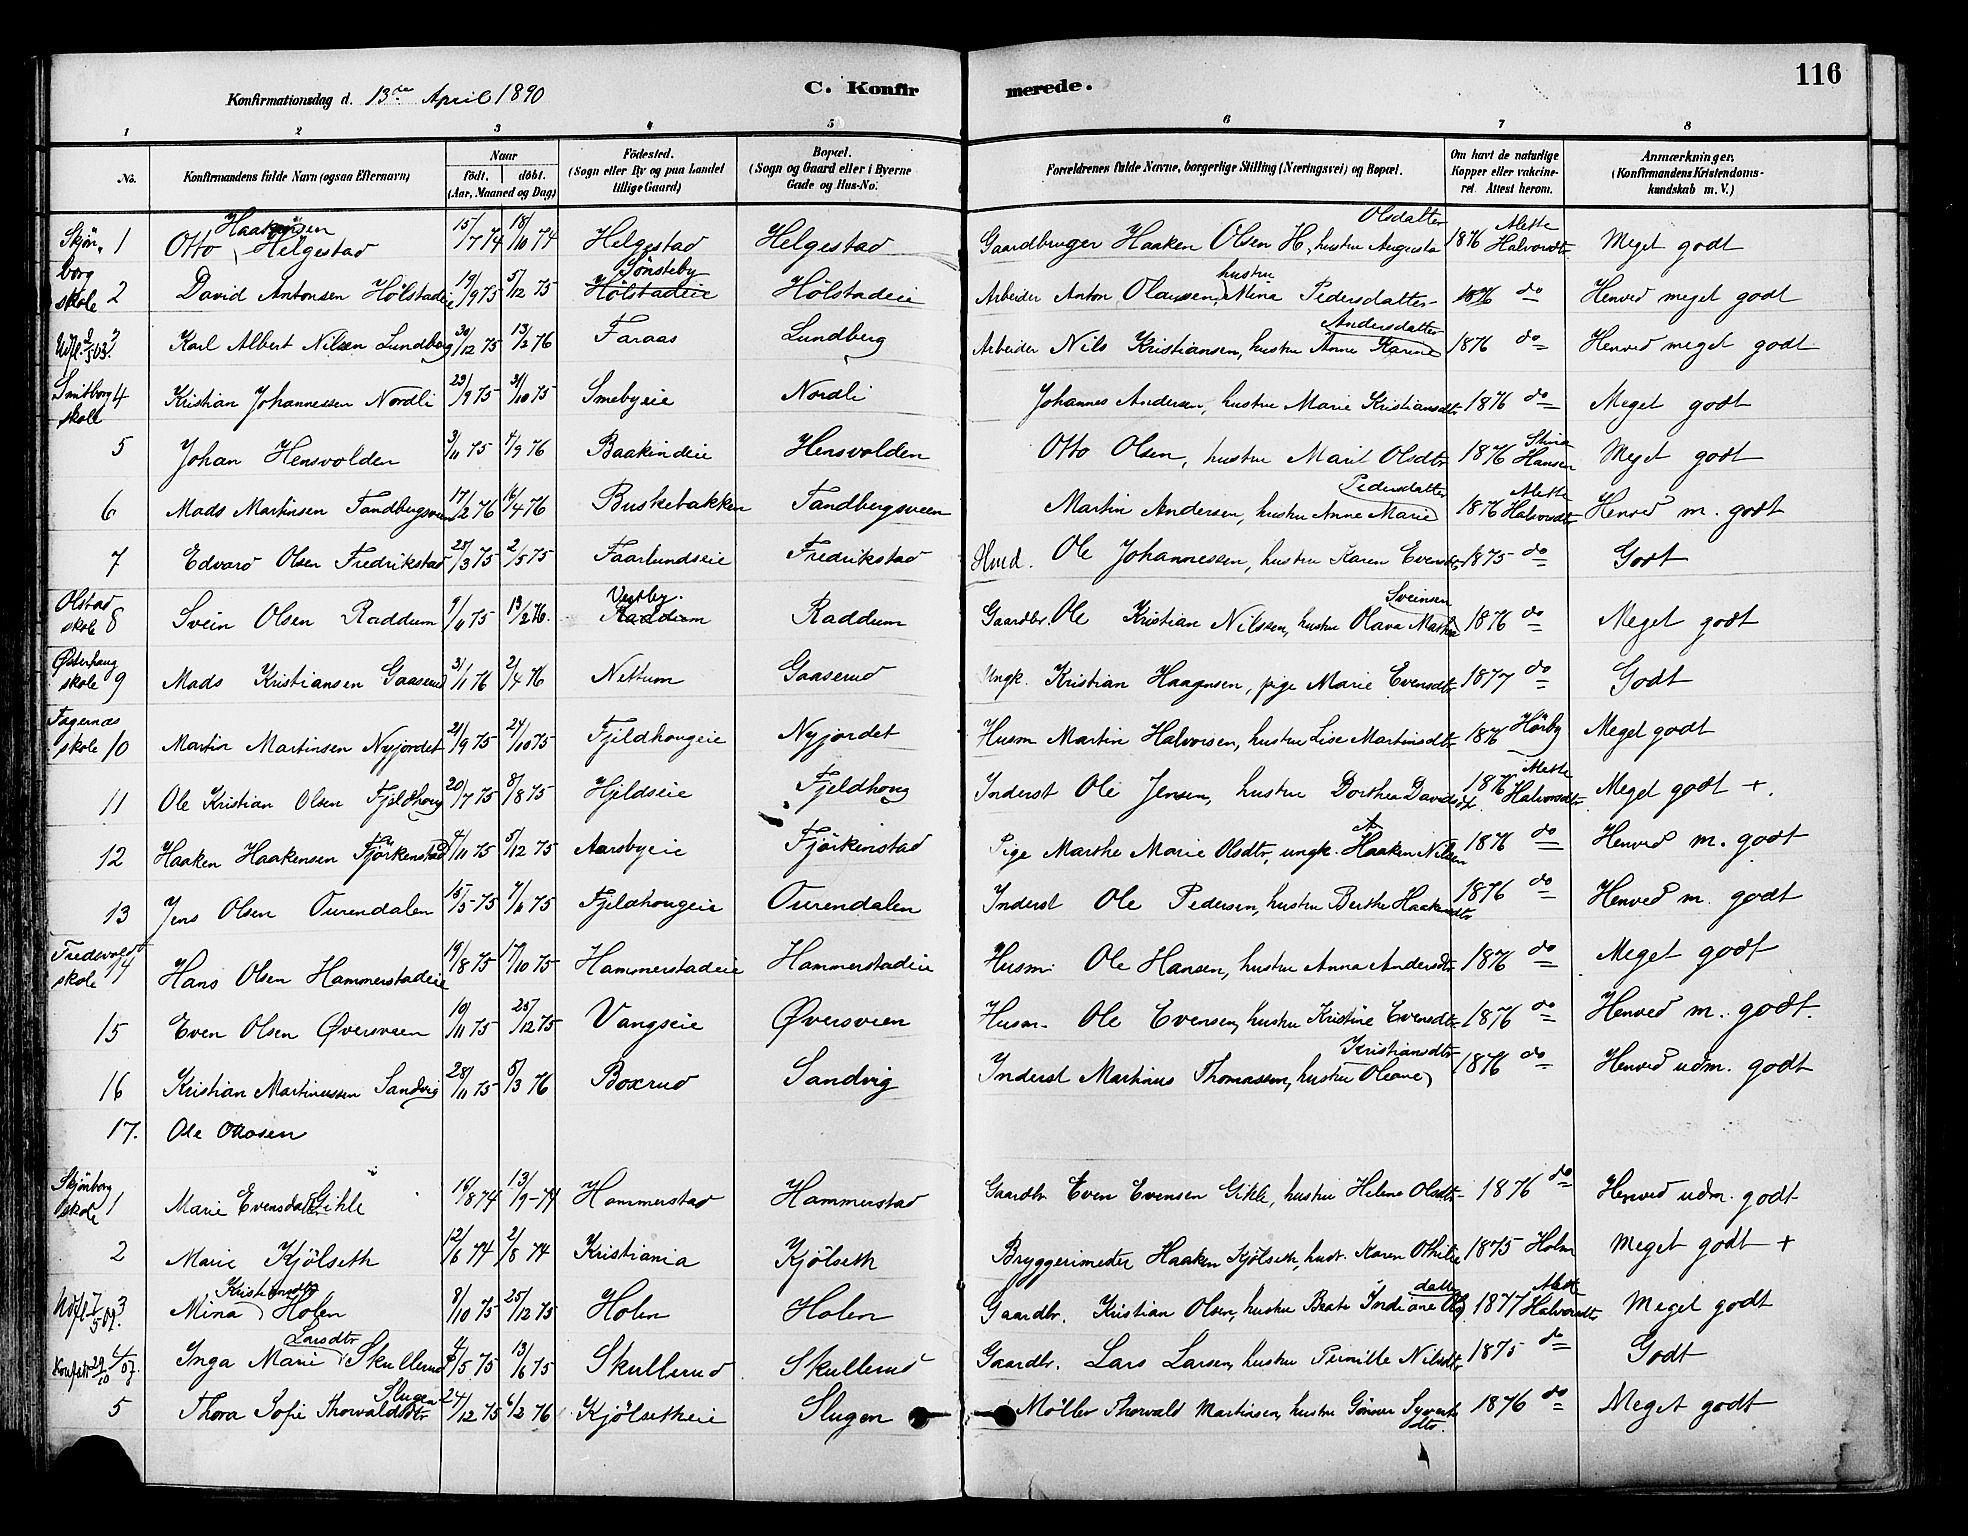 116
Konfirmationsdag d. 13de April 1890
C. Konfirmerede.
1 2 3 4 5 6 7 8
No. Konfirmandens fulde Navn (ogsaa Efternavn) Naar födt. döbt. (Aar, Maaned og Dag) Födested. (Sogn eller By og paa Landet tillige Gaard) Bopæl. (Sogn og Gaard eller i Byerne Gade og Hus-No. Forældrenes fulde Navne, borgerlige Stilling (Næringsvei) og Bopæl. Om havt de naturlige Kopper eller vakcineret. Attest herom. Anmærkninger. (Konfirmandens Kristendomskundskab m. V.)
Skjönborg skole 1 Otto Haakensen Helgestad 15/7 74 18/10 74 Helgestad Helgestad Gaardbruger Haaken Olsen H., hustru Augusta Olsdatter 1876 Alette Halvorsdtr Meget godt
2 David Antonsen Hölstadeie 19/9 75 5/12 75 Sönsteby Hölstadeie Hölstadeie Arbeider Anton Olaussen, hustru Mina Pedersdatter 1876 do Henved meget godt
3 Karl Albert Nilsen Lundberg 30/12 75 13/2 76 Faraas Lundberg Arbeider Nils Kristiansen, hustru Anne Karine Andersdatter 1876 do Henved meget godt
Smitborg skole 4 Kristian Johannessen Nordli 23/9 75 31/10 75 Smebyeie Nordli Johannes Andersen, hustru Marie Kristiansdtr 1876 do Meget godt
5 Johan Hensvolden 3/11 75 4/9 76 Baakindeie Hensvolden Otto Olsen, hustru Marit Olsdtr 1876 Stina Hansen Meget godt
6 Mads Martinsen Tandbergsveen 17/2 76 16/4 76 Buskebakken Tandbergsveen Martin Andersen, hustru Anne Marie Pedersdatter 1876 Alette Halvorsdtr Henved m. godt
7 Edvard Olsen Fredrikstad 25/3 75 2/5 75 Faarlundseie Fredrikstad Ole Johannesen, hustru Karen Evensdtr 1875 do Godt
Olstad skole 8 Svein Olsen Raddum 9/11 75 13/2 76. Vestby. Raddum Raddum Gaardbr. Ole Kristian Nilssen, hustru Olava Mathea Sveinsen 1876 do Meget godt
Østerhaug skole 9 Mads Kristiansen Gaaserud 3/1 76 2/4 76 Nettum Gaaserud Ungk. Kristian Haagensen, pige Marie Evensdtr 1877 do Godt
Fagernæs skole 10 Martin Martinsen Nyjordet 21/9 75 24/10 75 Fjeldhougeie Nyjordet Husm Martin Halvorsen, hustru Lise Martinsdtr 1876 Hörby Meget godt
11 Ole Kristian Olsen Fjeldhoug 20/7 75 8/8 75 Hjeldseie Fjeldhoug Inderst Ole Jensen, hustru Dorthea Davidsdtr. 1876 Alette Halvorsdtr. Meget godt +.
12 Haaken Haakensen Fjörkenstad 4/11 75 5/12 75 Aarsbyeie Fjörkinstad Pige Marthe Marie Olsdtr, ungk. Haaken A. Nilsen 1876 do Henved m. godt
13 Jens Olsen Ourendalen 15/5 75 7/6 75 Fjeldhougeie Ourendalen Inderst Ole Pedersen, hustru Berthe Haakensdtr 1876 do Henved m. godt
skole 14 Hans Olsen Hammerstadeie 19/8 75 17/10 75 Hammerstadeie Hammerstadeie Husm. Ole Hansen, hustru Anna Andersdtr 1876 do Meget godt
15 Even Olsen Øversveen 10/11 75 25/12 75 Vangseie Øversveen Husm. Ole Evensen, hustru Kristine Evensdtr 1876 do Henved m. godt.
16 Kristian Martinussen Sandvig 28/11 75 5/3 76 Boxrud Sandvig Inderst Martinus Thomassen, hustru Oleane Kristiansdtr 1876 do Henved udm. godt
17. Ole Ottosen
Skjönborg skole 1 Marie Evensdatter Gihle 16/8 74 13/9-74 Hammerstad Hammerstad Gaardbr. Even Evensen Gihle, hustru Helene Olsdtr 1876 do Henved udm. godt
2 Marie Kjölseth 12/6 74 2/8 74 Kristiania Kjölseth Bryggerimester Haaken Kjölseth, hust. Karen Othilie 1875 Holm Meget godt +
3 Mina Kristiansdtr Holen 8/10 75 25/12 75 Holen Holen Gaardbr. Kristian Olsen, hustru Beate Indiane Olsdatter 1877 Alette Halvorsdtr Meget godt
Inga Marie Larsdtr Skullerud 4/5 75 13/6 75 Skullerud Skullerud Gaardbr. Lars Larsen, hustru Pernille Nilsdtr 1875 do Godt
5 Thora Sofie Thorvaldsdtr Slugen 24/12 75 6/2 76 Kjölsetheie Slugen Möller Thorvald Martinsen, hustru Gunver Syvertsdtr. 1876 do Meget godt